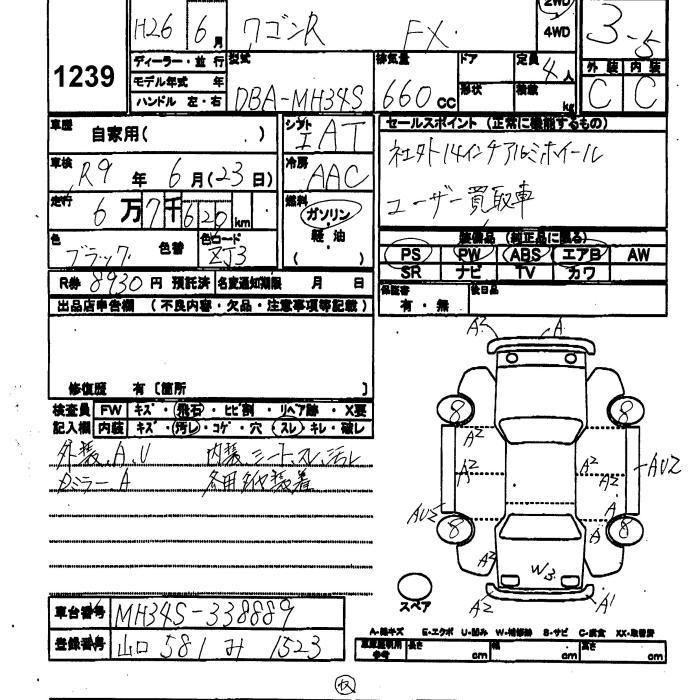 H26 6月 ワゴンR FX 2WD
4WD
3-5
1239
ディーラー・並行 型式 排気量 ドア 定員 4人 外装 内装
モデル年式 年 形状 積数 kg
ハンドル 左・右 DBA-MH34S 660cc C C
車歴 自家用( ) シフト IAT セールスポイント (正常に機能するもの)
車検 R9年 6月(23日) 冷房 AAC 社外14インチアルミホイール
走行 6万7千620km 燃料 ガソリン ユーザー買取車
軽油
( )
色 ブラック 色替 色コード ZJ3
装備品 (純正品に限る)
PS PW ABS エアB AW
SR ナビ TV カワ
R券 8930円 預託済 名変通知期限 月 日
保証書 有・無 後日品
出品店申告欄 (不良内容・欠品・注意事項等記載)
修復歴 有〔箇所 〕
検査員 FW キズ・飛石・ヒビ割・リペア跡・X要
記入欄 内装 キズ・汚レ・コゲ・穴・スレ・キレ・破レ
外装.A.U 内装シートスレ.汚レ
Dミラー.A 冬用タイヤ装着
A2 A
8 8
A2 A2
A2 A2 A2 AU2
AU2 8 A A 8
A2 W3
A2 A1
スペア
車台番号 MH34S-338889
登録番号 山口 581 み 1523
A-線キズ E-エクボ U-凹み W-補修跡 S-サビ C-腐食 XX-取替済
車庫証明用参考 長さ cm 幅 cm 高さ cm